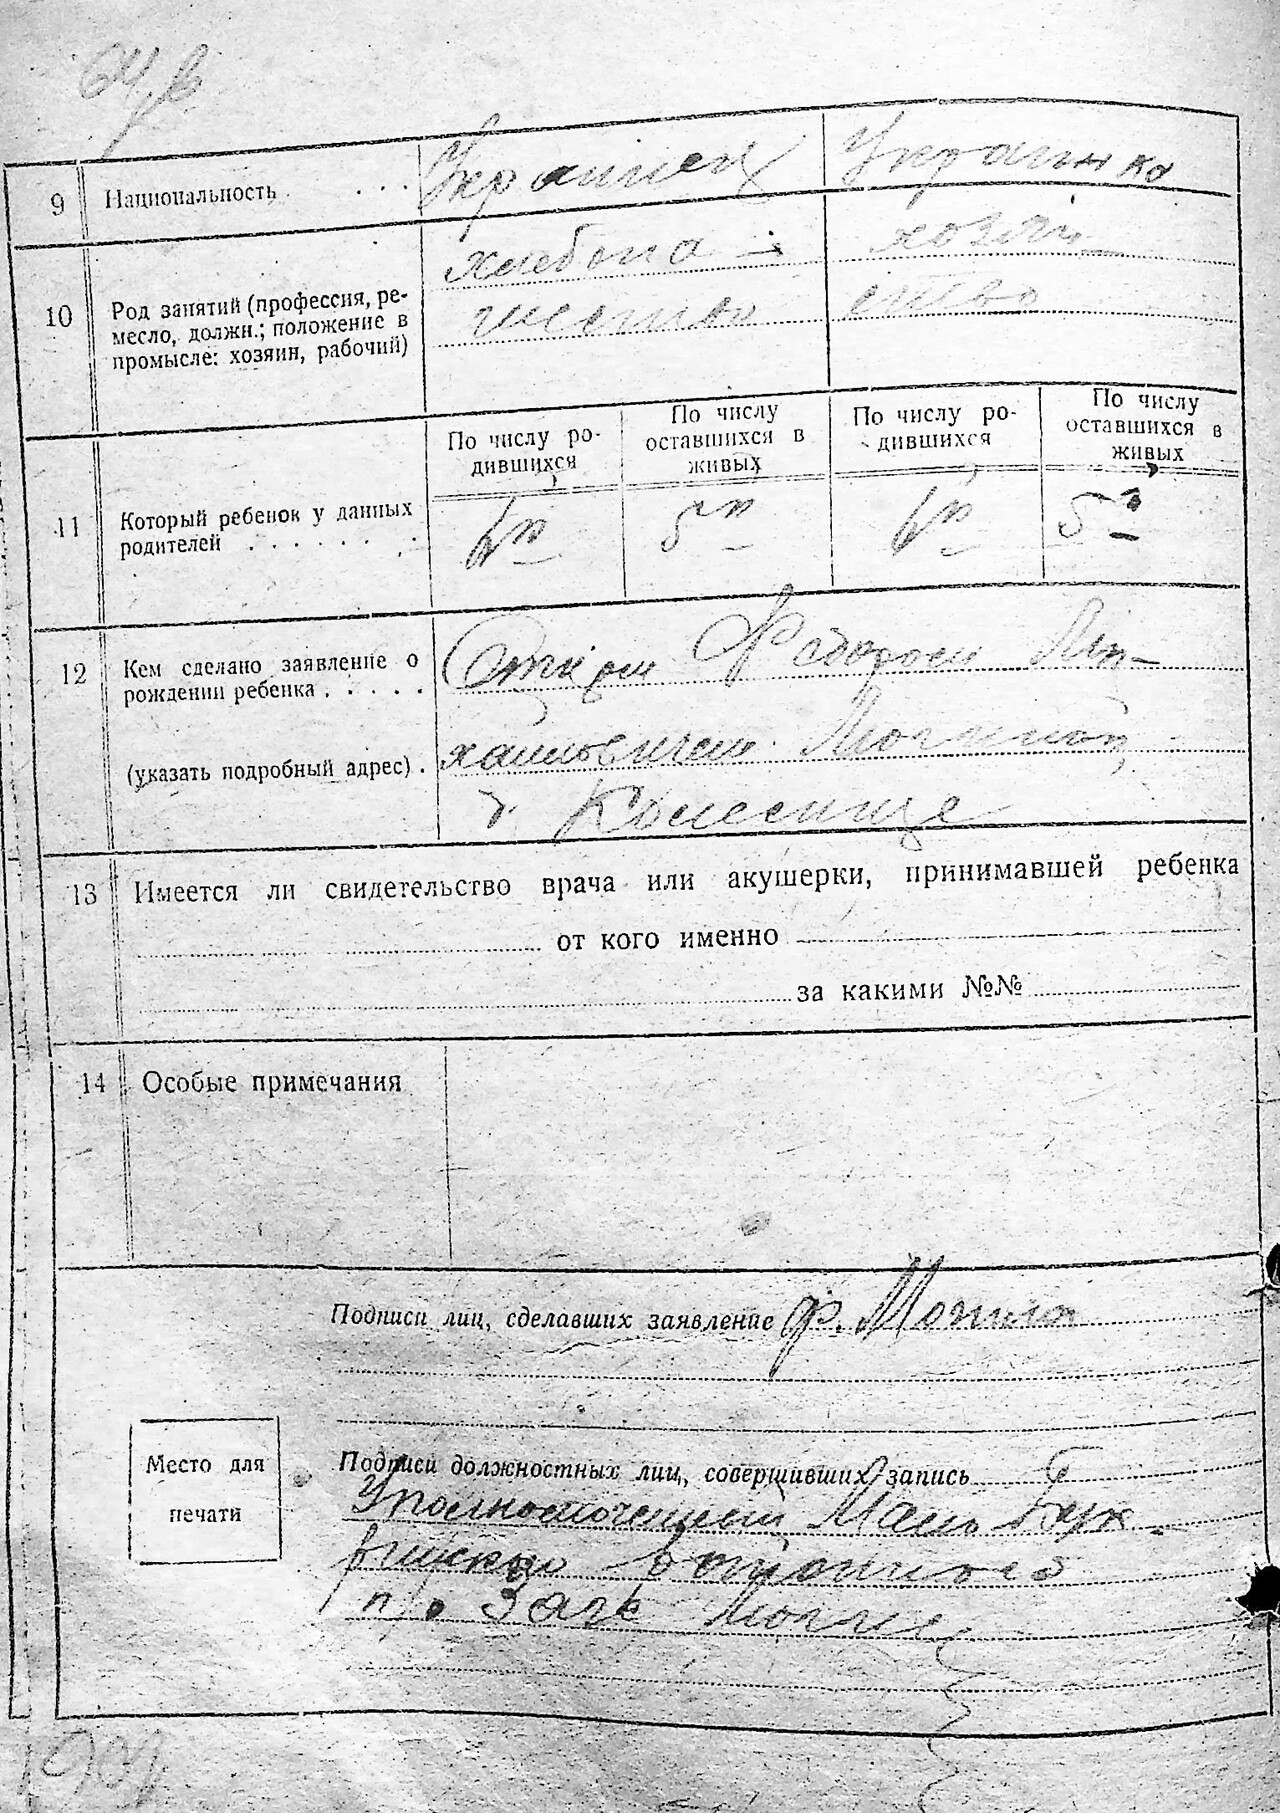 9 Национальность . . . Украинец Украинка
10 Род занятий (профессия, ре-
месло, должн.; положение в
промысле: хозяин, рабочий)
хлебопа- хозяй-
шество ство
По числу ро-
дившихся
По числу
оставшихся в
живых
По числу ро-
дившихся
По числу
оставшихся в
живых
11 Который ребенок у данных
родителей . . . . . . .
5й 5й
12 Кем сделано заявление о
рождении ребенка . . . . .
Отцом Федором Ми-
(указать подробный адрес) .
хайловичем Могилой
Колесище
13 Имеется ли свидетельство врача или акушерки, принимавшей ребенка
от кого именно
за какими №№
14 Особые примечания
Подписи лиц, сделавших заявление Ф. Могила
Место для
печати
Подписи должностных лиц, совершивших запись
Уполномоченный Мало Бук-
п/о Загс